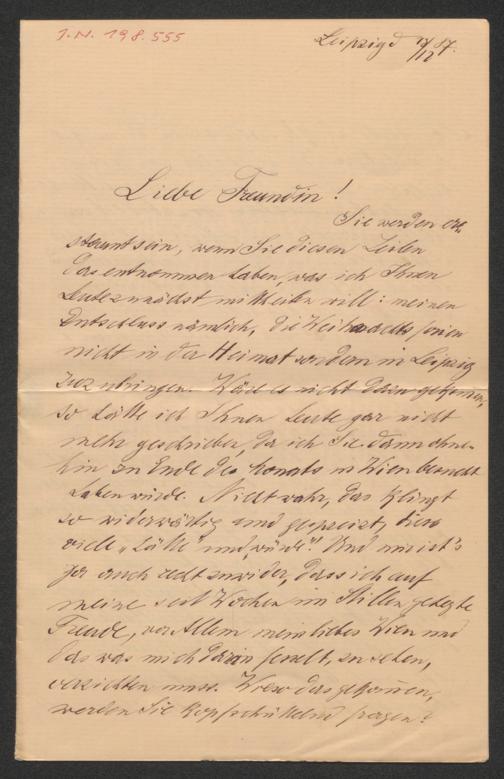 J.N. 198.555
Leipzig d 17/12 87.
Liebe Freundin!
Sie werden er-
staunt sein, wenn Sie diesen Zeilen
das entnommen haben, was ich Ihnen
heute zunächst mittheilen will: meinen
Entschluss nämlich, die Weihnachtsferien
nicht in der Heimat sondern in Leipzig
zuzubringen. Wäre es nicht dazu gekommen,
so hätte ich Ihnen heute gar nicht
mehr geschrieben, da ich Sie dann ohne-
hin zu Ende des Monats in Wien besucht
haben würde. Nicht wahr, das klingt
so widerwärtig und gespreizt, diese
viele „hätte" und „würde"! Und mir ist's
ja auch recht zuwider, dass ich auf
meine seit Wochen im Stillen gehegte
Freude, vor Allem mein liebes Wien und
das was mich daran fesselt, zu sehen,
verzichten muss. Wieso das gekommen,
werden Sie kopfschüttelnd fragen?